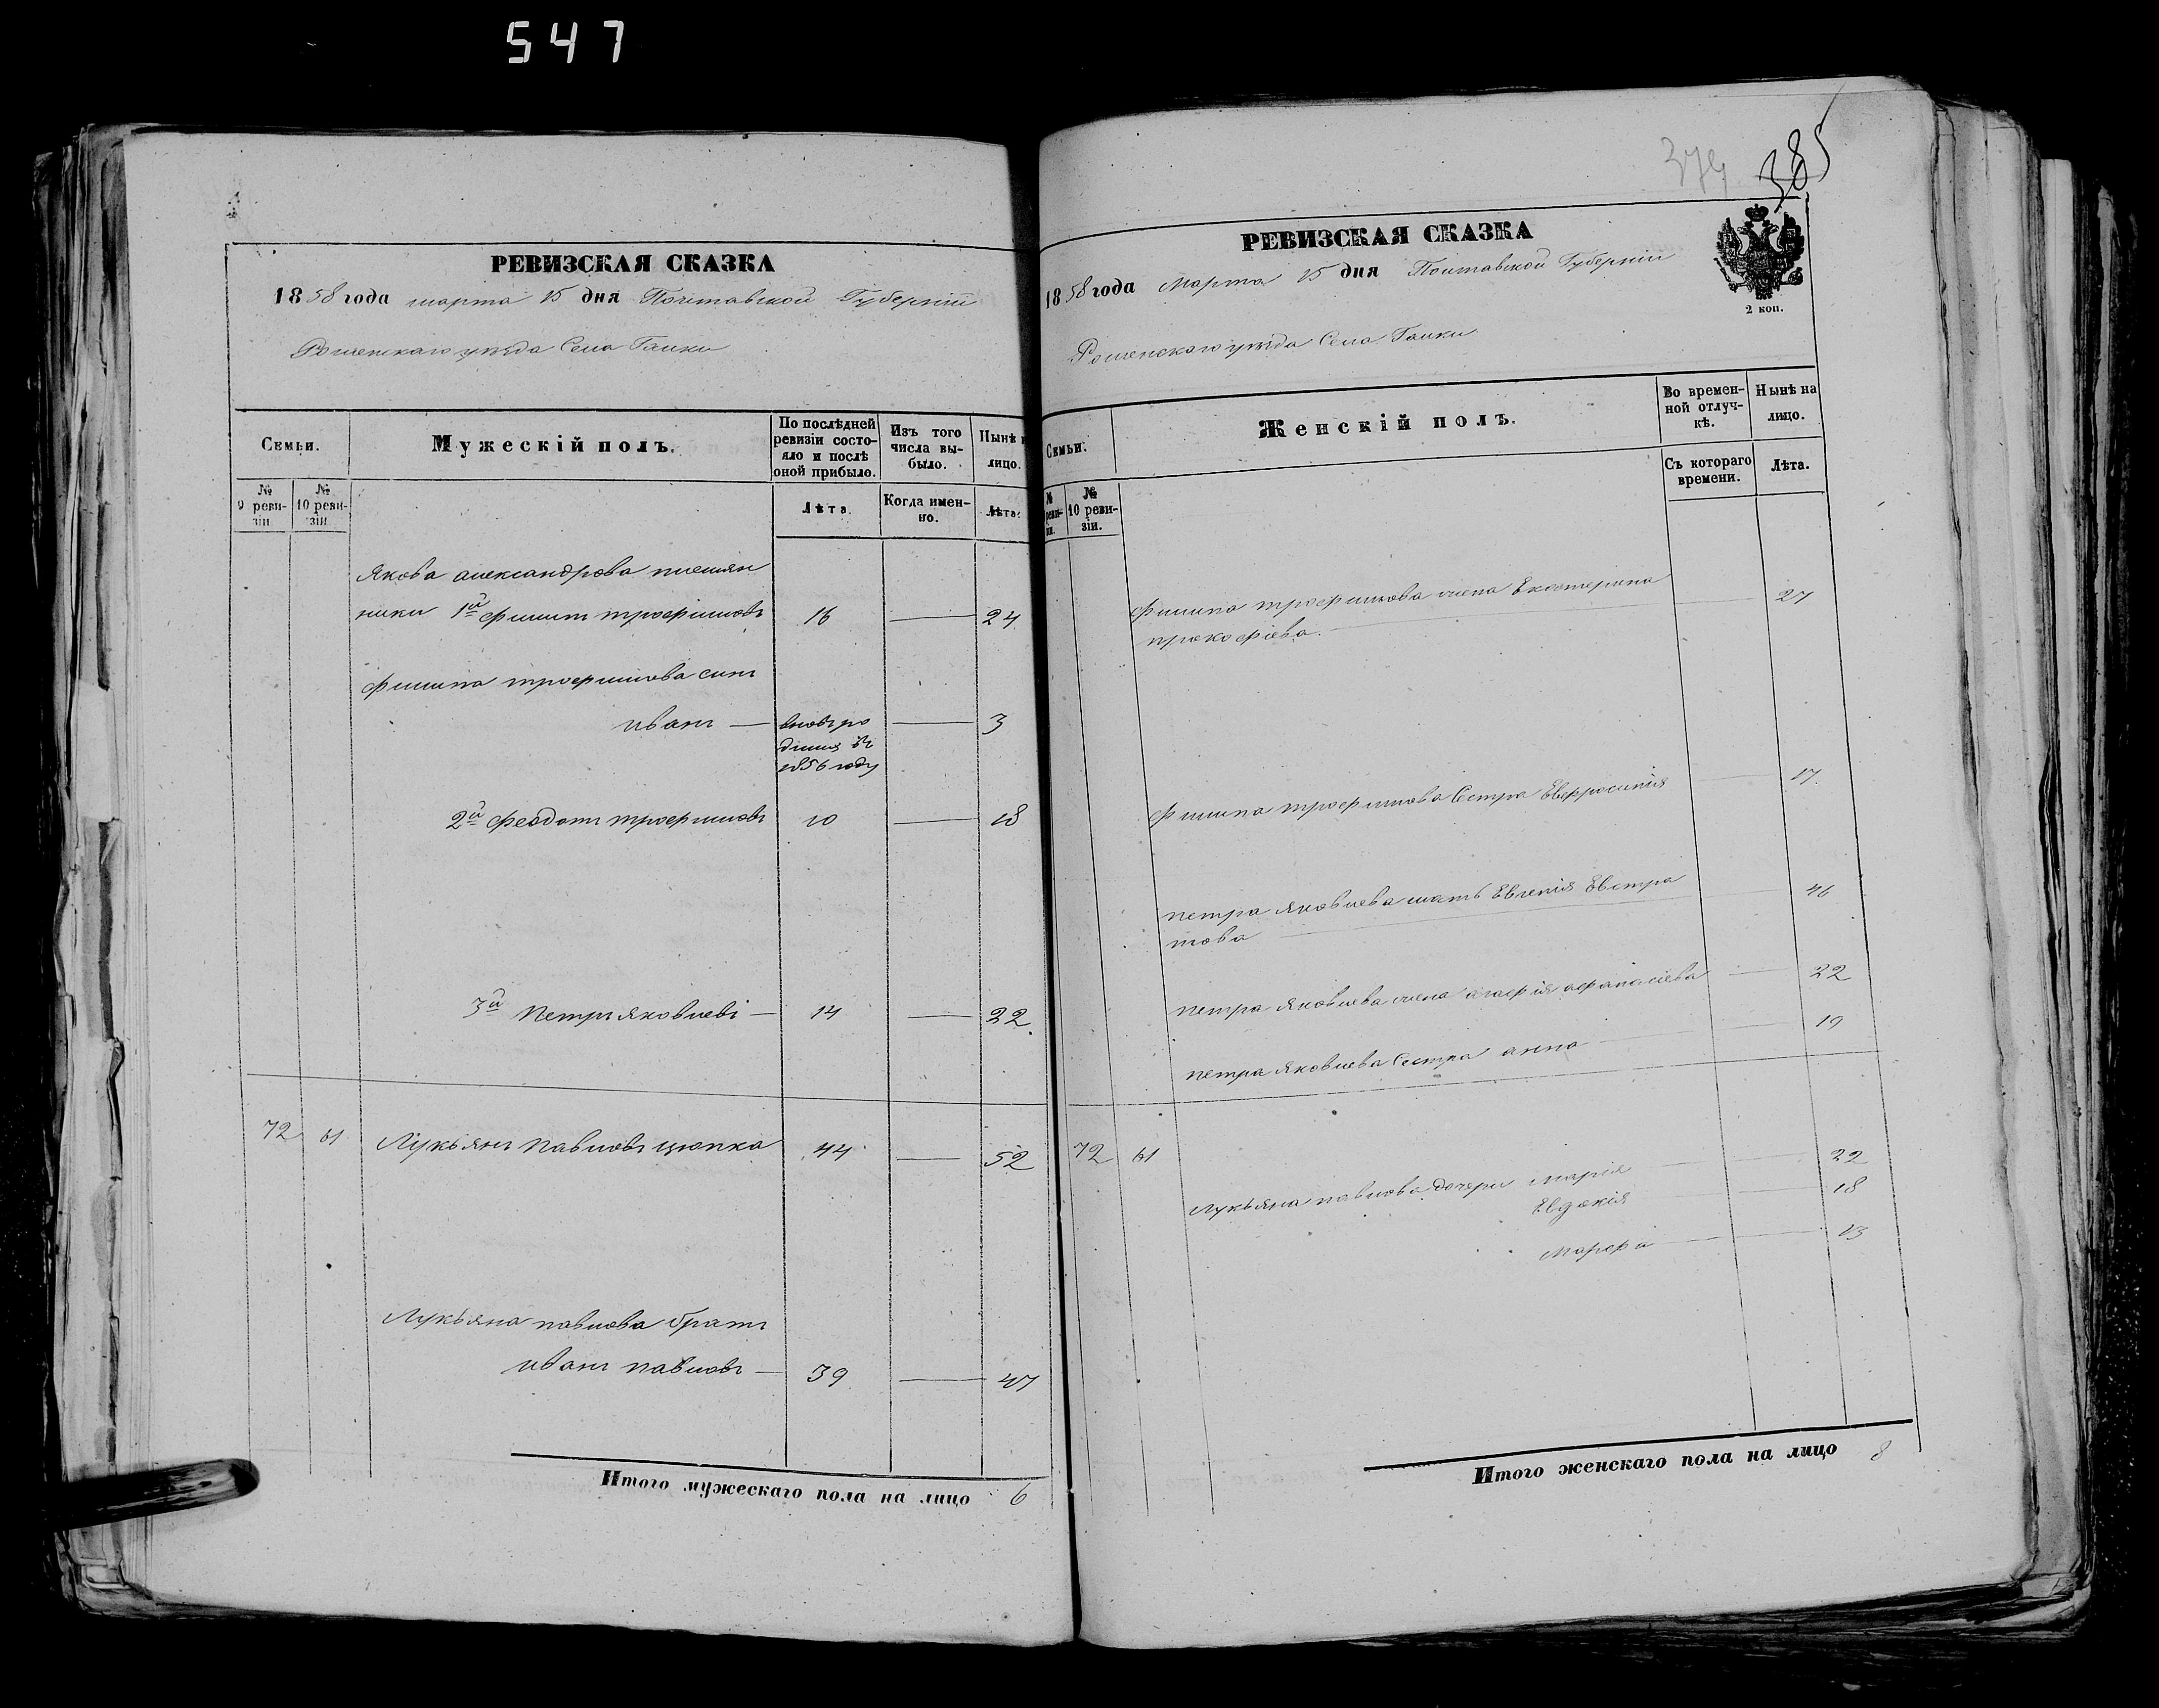 547
РЕВИЗСКАЯ СКАЗКА
1858 года марта 15 дня Полтавской Губернии
Роменскаго уезда Села Галки
Семьи.
Мужескій полъ.
По послѣдней ревизіи состояло и послѣ оной прибыло.
Изъ того числа выбыло.
Нынѣ
лицо.
№ 9 ревизіи
№ 10 ревизіи
Лѣта
Когда именно.
Лѣта.
Якова александрова племян
ники 1й филипъ трофимовъ 16 — 24
филипа трофимова синъ
иванъ — вновьро — 3
1856 году
2й феодотъ трофимовъ 10 — 18
3й петръ яковлевъ — 14 — 22
72 61 Лукьянъ павловъ цюпка 44 — 52
Лукьяна павлова братъ
иванъ павловъ — 39 — 47
Итого мужескаго пола на лицо 6
374 385
РЕВИЗСКАЯ СКАЗКА
1858 года Марта 15 дня Полтавской Губерніи
2 коп.
Роменскаго уезда Села Галки
Семьи.
Женскій полъ.
Во временной отлучкѣ.
Нынѣ на лицо.
№ 10 ревизіи.
Съ котораго времени.
Лѣта.
филипа трофимова жена Екатерина — 27
прокофіева
филипа трофимова Сестра Евфросинія — 17
петра яковлева мать Евгенія Евстра — 46
това
петра яковлева жена агафія афанасіева — 22
петра яковлева Сестра анна — 19
72 61
Лукьяна павлова дочери марія — 22
Евдокія — 18
марфа — 13
Итого женскаго пола на лицо 8